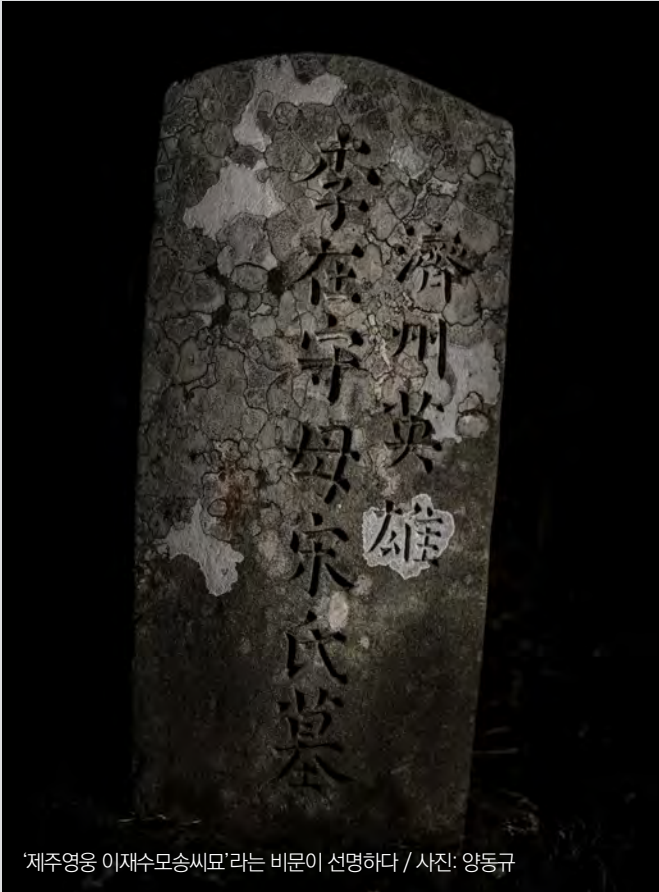 濟州英雄
李在守母宋氏墓
‘제주영웅 이재수모송씨묘’라는 비문이 선명하다 / 사진: 양동규